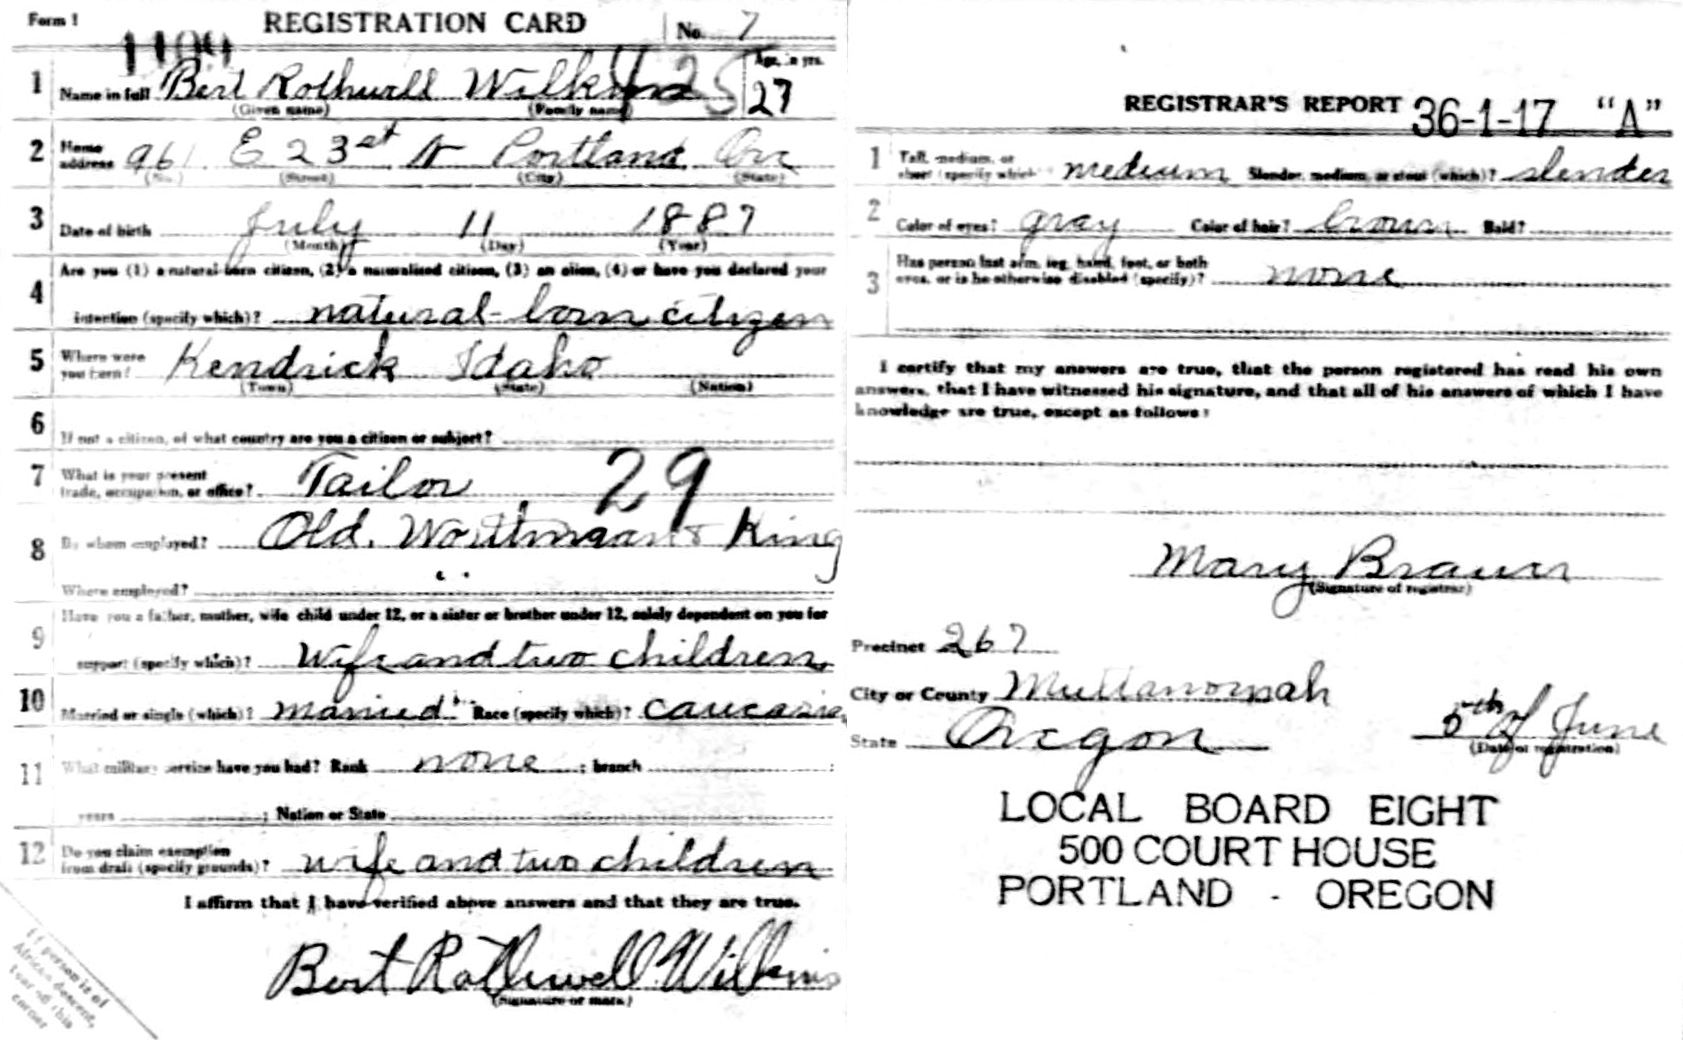 Form 1 REGISTRATION CARD No. 7
1 Name in full Bert Rothwell Wilkins 27 Age, in yrs.
(Given name) (Family name)
2 Home address 961 E 23rd N Portland Ore
(No.) (Street) (City) (State)
3 Date of birth July 11 1887
(Month) (Day) (Year)
4 Are you (1) a natural-born citizen, (2) a naturalized citizen, (3) an alien, (4) or have you declared your
intention (specify which)? natural-born citizen
5 Where were you born? Kendrick Idaho
(Town) (State) (Nation)
6 If not a citizen, of what country are you a citizen or subject?
7 What is your present trade, occupation, or office? Tailor 29
8 By whom employed? Old, Wortman & King
Where employed?
9 Have you a father, mother, wife child under 12, or a sister or brother under 12, solely dependent on you for
support (specify which)? Wife and two children
10 Married or single (which)? married Race (specify which)? caucasian
11 What military service have you had? Rank none ; branch
years ; Nation or State
12 Do you claim exemption from draft (specify grounds)? wife and two children
I affirm that I have verified above answers and that they are true.
Bert Rothwell Wilkins
(Signature or mark)
If person is of
African descent,
tear off this
corner
REGISTRAR'S REPORT 36-1-17 "A"
1 Tall, medium, or short (specify which) medium Slender, medium, or stout (which)? slender
2 Color of eyes? gray Color of hair? brown Bald?
3 Has person lost arm, leg, hand, foot, or both
eyes, or is he otherwise disabled (specify)? none
I certify that my answers are true, that the person registered has read his own
answers, that I have witnessed his signature, and that all of his answers of which I have
knowledge are true, except as follows:
Mary Brawn
(Signature of registrar)
Precinct 267
City or County Multanomah
State Oregon 5th of June
(Date of registration)
LOCAL BOARD EIGHT
500 COURT HOUSE
PORTLAND - OREGON